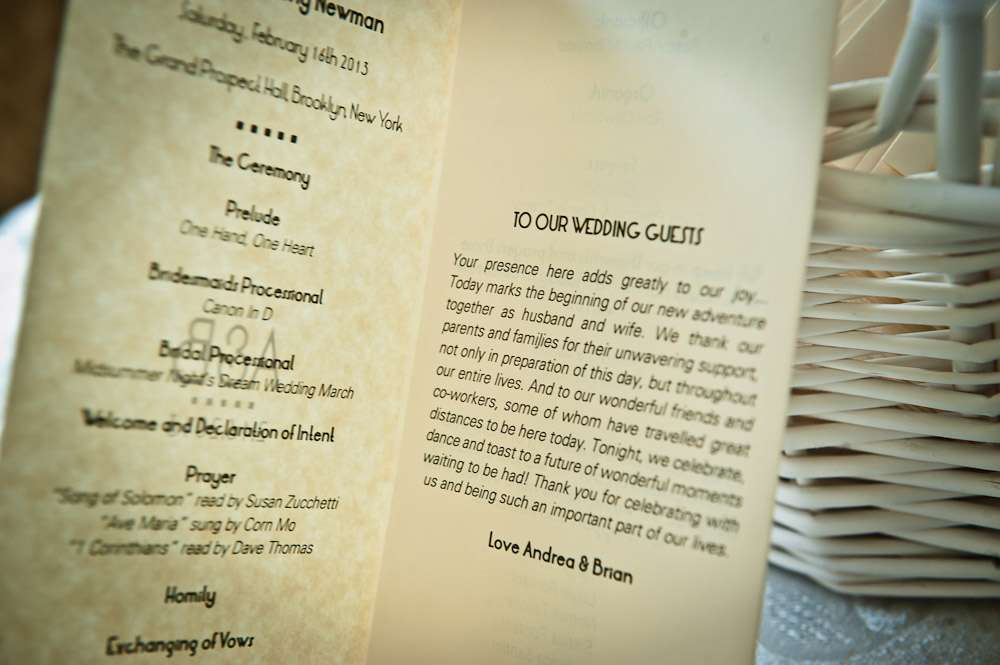 Newman
Saturday, February 16th 2013
The Grand Prospect Hall, Brooklyn, New York
The Ceremony
Prelude
One Hand, One Heart
Bridesmaids Processional
Canon In D
Bridal Processional
Midsummer Night's Dream Wedding March
Welcome and Declaration of Intent
Prayer
"Song of Solomon" read by Susan Zucchetti
"Ave Maria" sung by Corn Mo
"1 Corinthians" read by Dave Thomas
Homily
Exchanging of Vows
TO OUR WEDDING GUESTS
Your presence here adds greatly to our joy...
Today marks the beginning of our new adventure
together as husband and wife. We thank our
parents and families for their unwavering support,
not only in preparation of this day, but throughout
our entire lives. And to our wonderful friends and
co-workers, some of whom have travelled great
distances to be here today. Tonight, we celebrate,
dance and toast to a future of wonderful moments
waiting to be had! Thank you for celebrating with
us and being such an important part of our lives.
Love Andrea & Brian